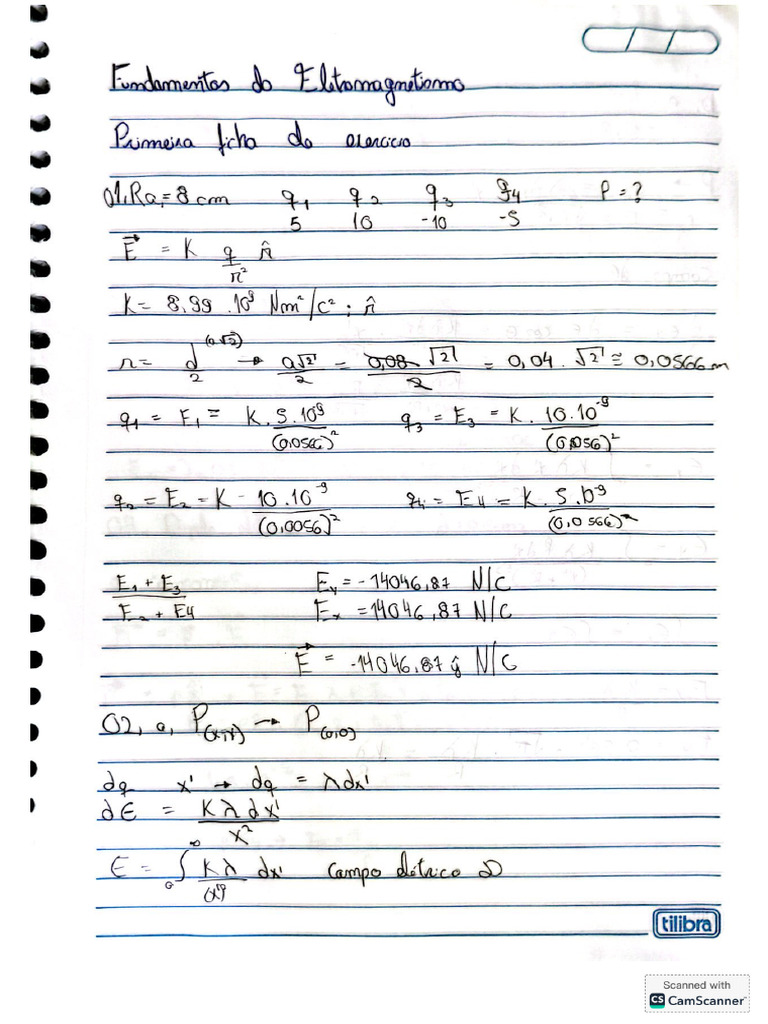 Fundamentos do Eletromagnetismo
Primeira ficha do exercício
01, Ra, = 8 cm q₁ q₂ q₃ q₄ P = ?
5 10 -10 -5
E⃗ = K q/r² r̂
K = 8,99 . 10⁹ Nm²/C² ; r̂
r = d/2 (a√2) → a√2/2 = 0,08 √2/2 = 0,04 . √2 ≅ 0,0566 m
q₁ = E₁ = K . 5 . 10⁻⁹/(0,0566)² q₃ = E₃ = K . 10 . 10⁻⁹/(0,056)²
q₂ = E₂ = K - 10 . 10⁻⁹/(0,0056)² q₄ = E4 = K . 5 . 10⁻⁹/(0,0566)²
E₁ + E₃ Ey = -14046,87 N/C
E₂ + E4 Ex = 14046,87 N/C
E⃗ = -14046,87 ŷ N/C
02, a, P(x,y) → P(0,0)
dq x' → dq = λdx'
dE = Kλdx'/x²
E = ∫₀^∞ Kλ/ dx' campo elétrico
tilibra
Scanned with
CS CamScanner